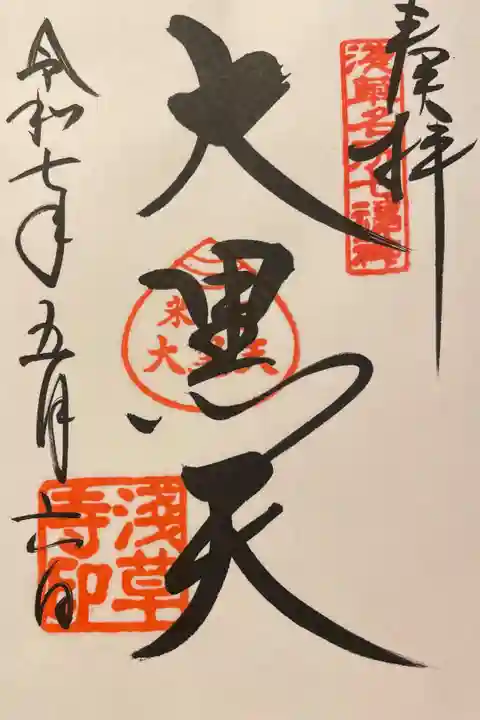 奉拝
浅草名所七福神
大黒天
米
大黒天
浅草
寺印
令和七年五月六日